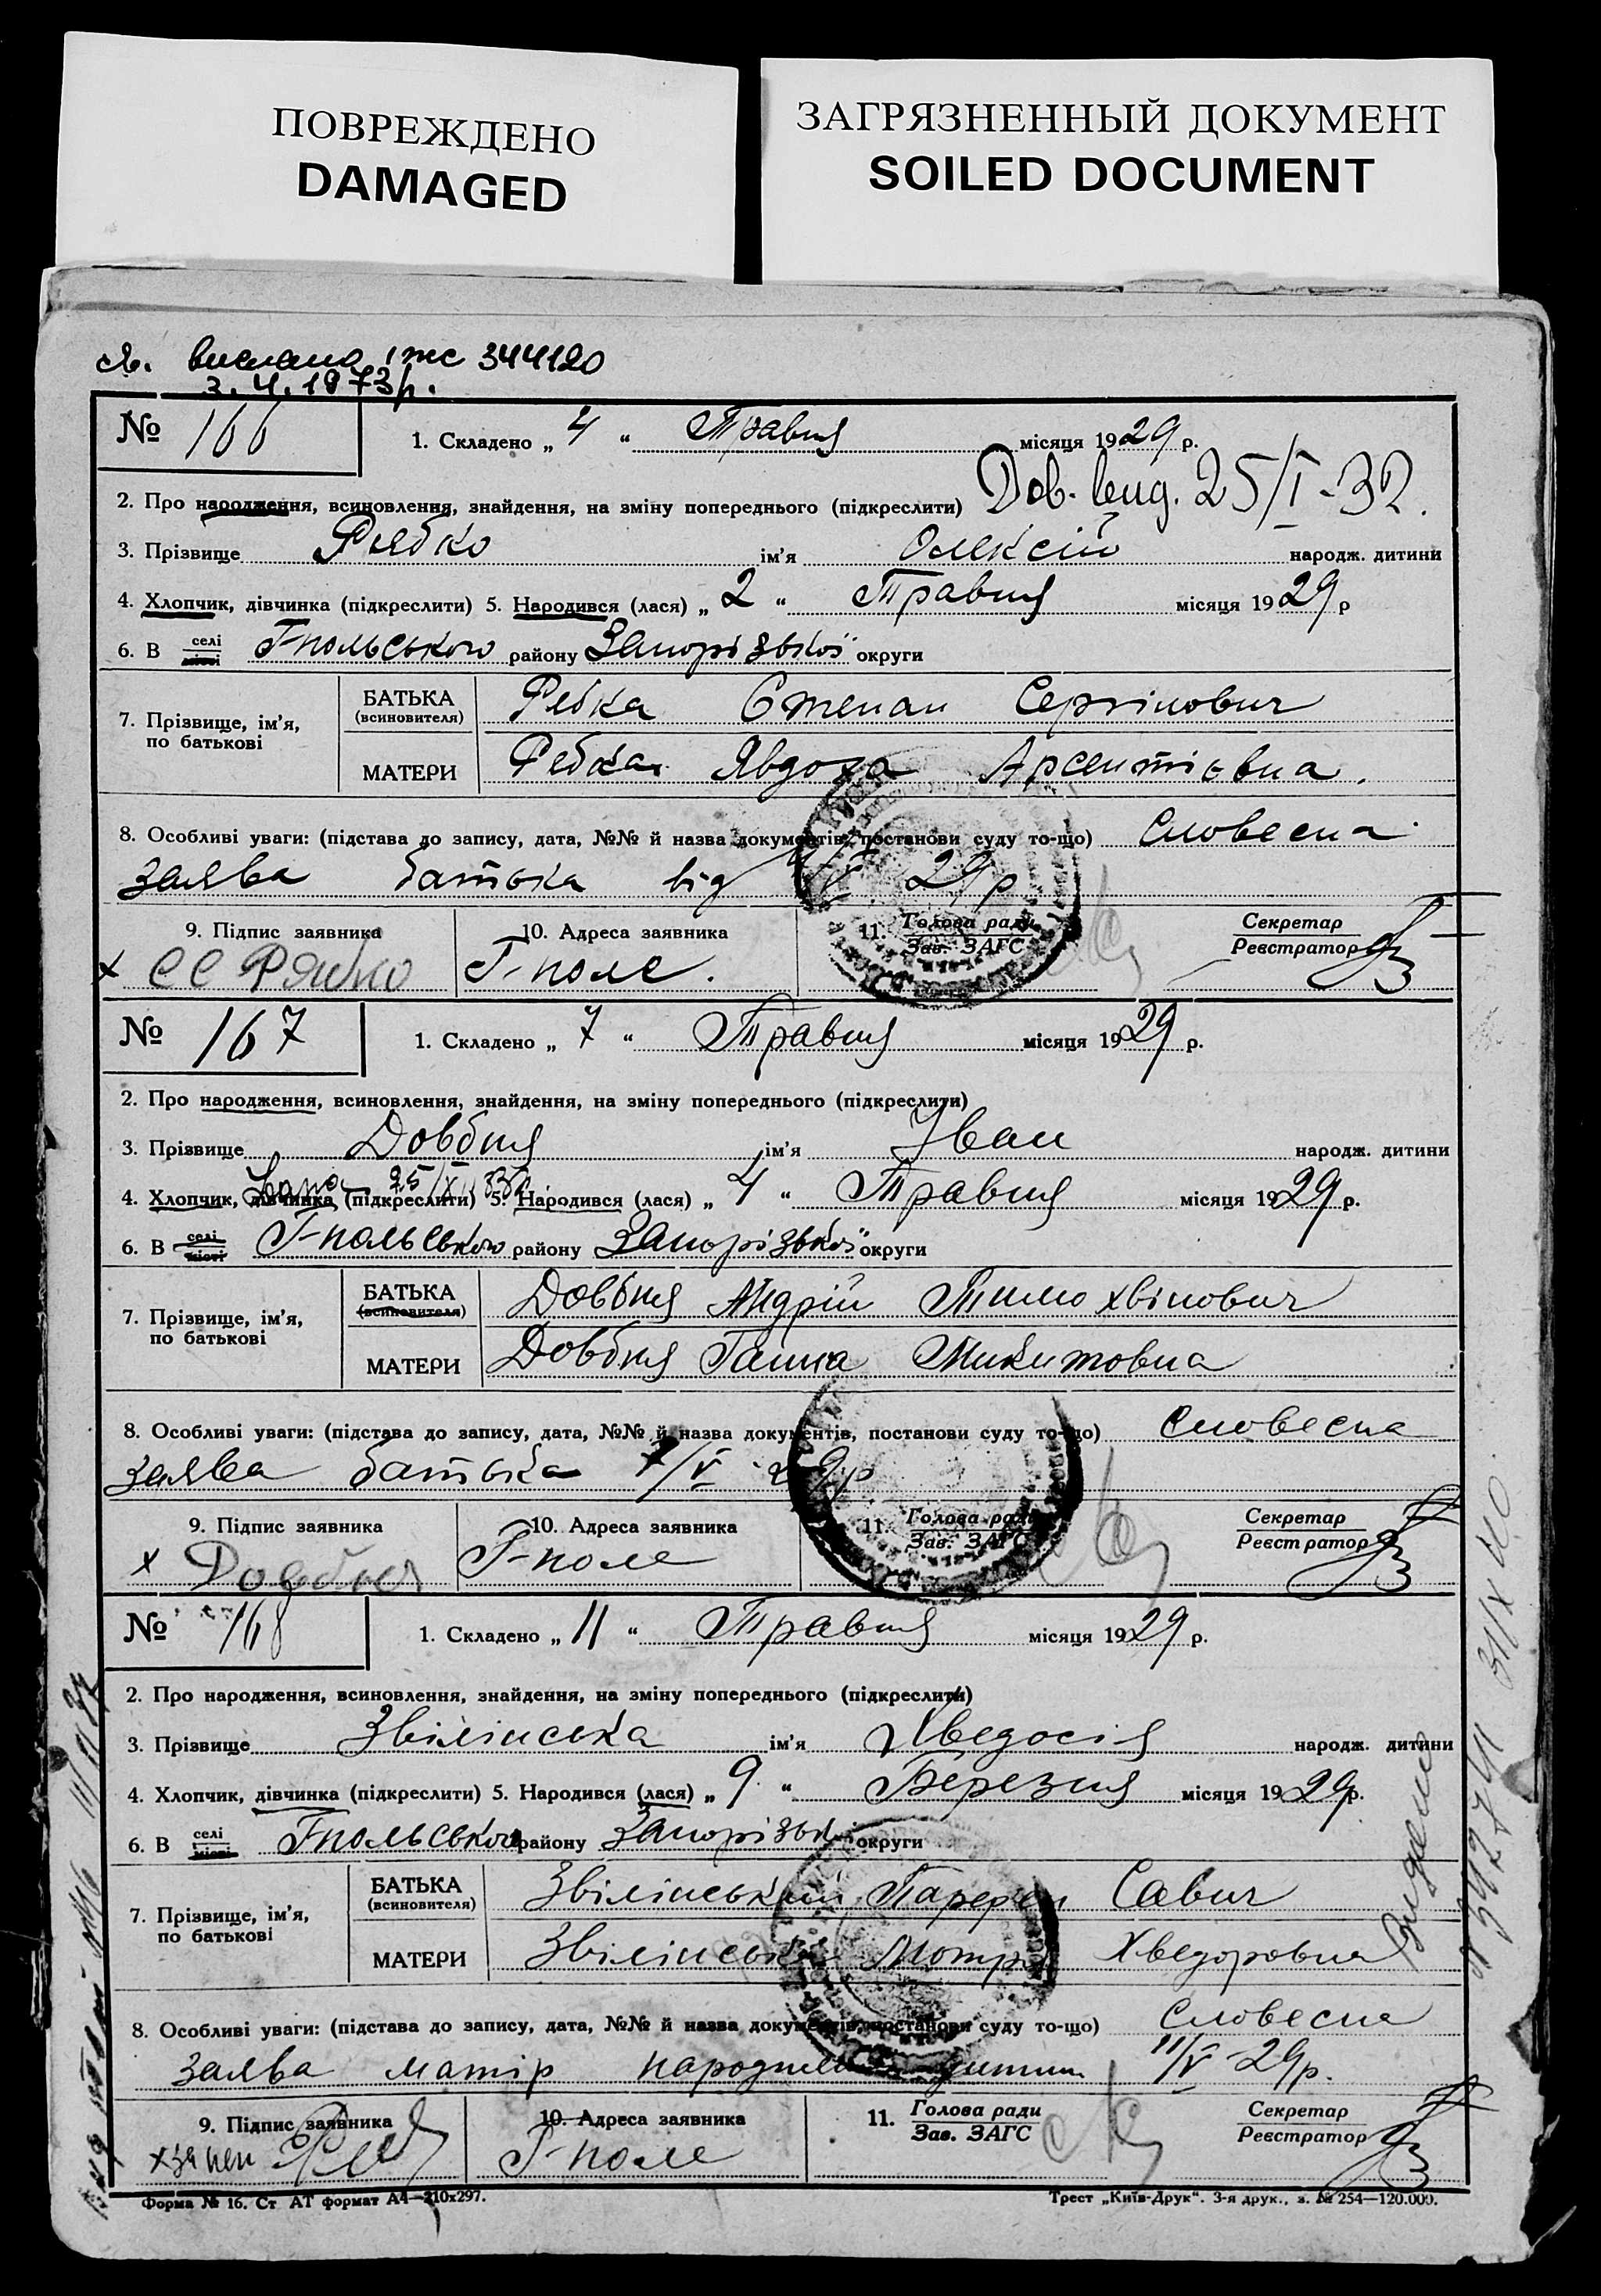 ПОВРЕЖДЕНО
DAMAGED
ЗАГРЯЗНЕННЫЙ ДОКУМЕНТ
SOILED DOCUMENT
вислана 344120
3.4.1973р.
№ 166
1. Складено „ 4 “ Травня місяця 1929 р.
2. Про народження, всиновлення, знайдення, на зміну попереднього (підкреслити) 25/I-32.
3. Прізвище Рябко ім'я Олексій народж. дитини
4. Хлопчик, дівчинка (підкреслити) 5. Народився (лася) „ 2 “ Травня місяця 1929 р
6. В селі місті Г-польського району Запорізької округи
7. Прізвище, ім'я, по батькові
БАТЬКА (всиновителя) Ребка Степан Сергійович
МАТЕРИ Ребка Явдоха Арсентієвна.
8. Особливі уваги: (підстава до запису, дата, №№ й назва документів, постанови суду то-що) Словесна
заява батька від 4/V 29р
9. Підпис заявника
х СС Рябко
10. Адреса заявника
Г-поле.
11. Голова ради
Зав. ЗАГС
Секретар
Реєстратор
№ 167
1. Складено „ 7 “ Травня місяця 1929 р.
2. Про народження, всиновлення, знайдення, на зміну попереднього (підкреслити)
3. Прізвище Довбня ім'я Іван народж. дитини
4. Хлопчик, дівчинка (підкреслити) 5. Народився (лася) „ 4 “ Травня місяця 1929 р.
6. В селі місті Г-польського району Запорізької округи
7. Прізвище, ім'я, по батькові
БАТЬКА (всиновителя) Довбня Андрій Тимохвійович
МАТЕРИ Довбня Ганна Микитовна
8. Особливі уваги: (підстава до запису, дата, №№ й назва документів, постанови суду то-що) Словесна
заява батька 7/V 29р
9. Підпис заявника
х Довбня
10. Адреса заявника
Г-поле
11. Голова ради
Зав. ЗАГС
Секретар
Реєстратор
№ 168
1. Складено „ 11 “ Травня місяця 1929 р.
2. Про народження, всиновлення, знайдення, на зміну попереднього (підкреслити)
3. Прізвище Звілінська ім'я Хведосія народж. дитини
4. Хлопчик, дівчинка (підкреслити) 5. Народився (лася) „ 9 “ Березня місяця 1929р.
6. В селі місті Г-польського району Запорізьк. округи
7. Прізвище, ім'я, по батькові
БАТЬКА (всиновителя) Звілінський Савич
МАТЕРИ Звілінська Мотря Хведоровна
8. Особливі уваги: (підстава до запису, дата, №№ й назва документів, постанови суду то-що) Словесна
заява матір 11/V-29р.
9. Підпис заявника
10. Адреса заявника
Г-поле
11. Голова ради
Зав. ЗАГС
Секретар
Реєстратор
Форма № 16. Ст. АТ формат А4—210х297.
Трест „Київ-Друк“. 3-я друк., з. № 254—120.000.